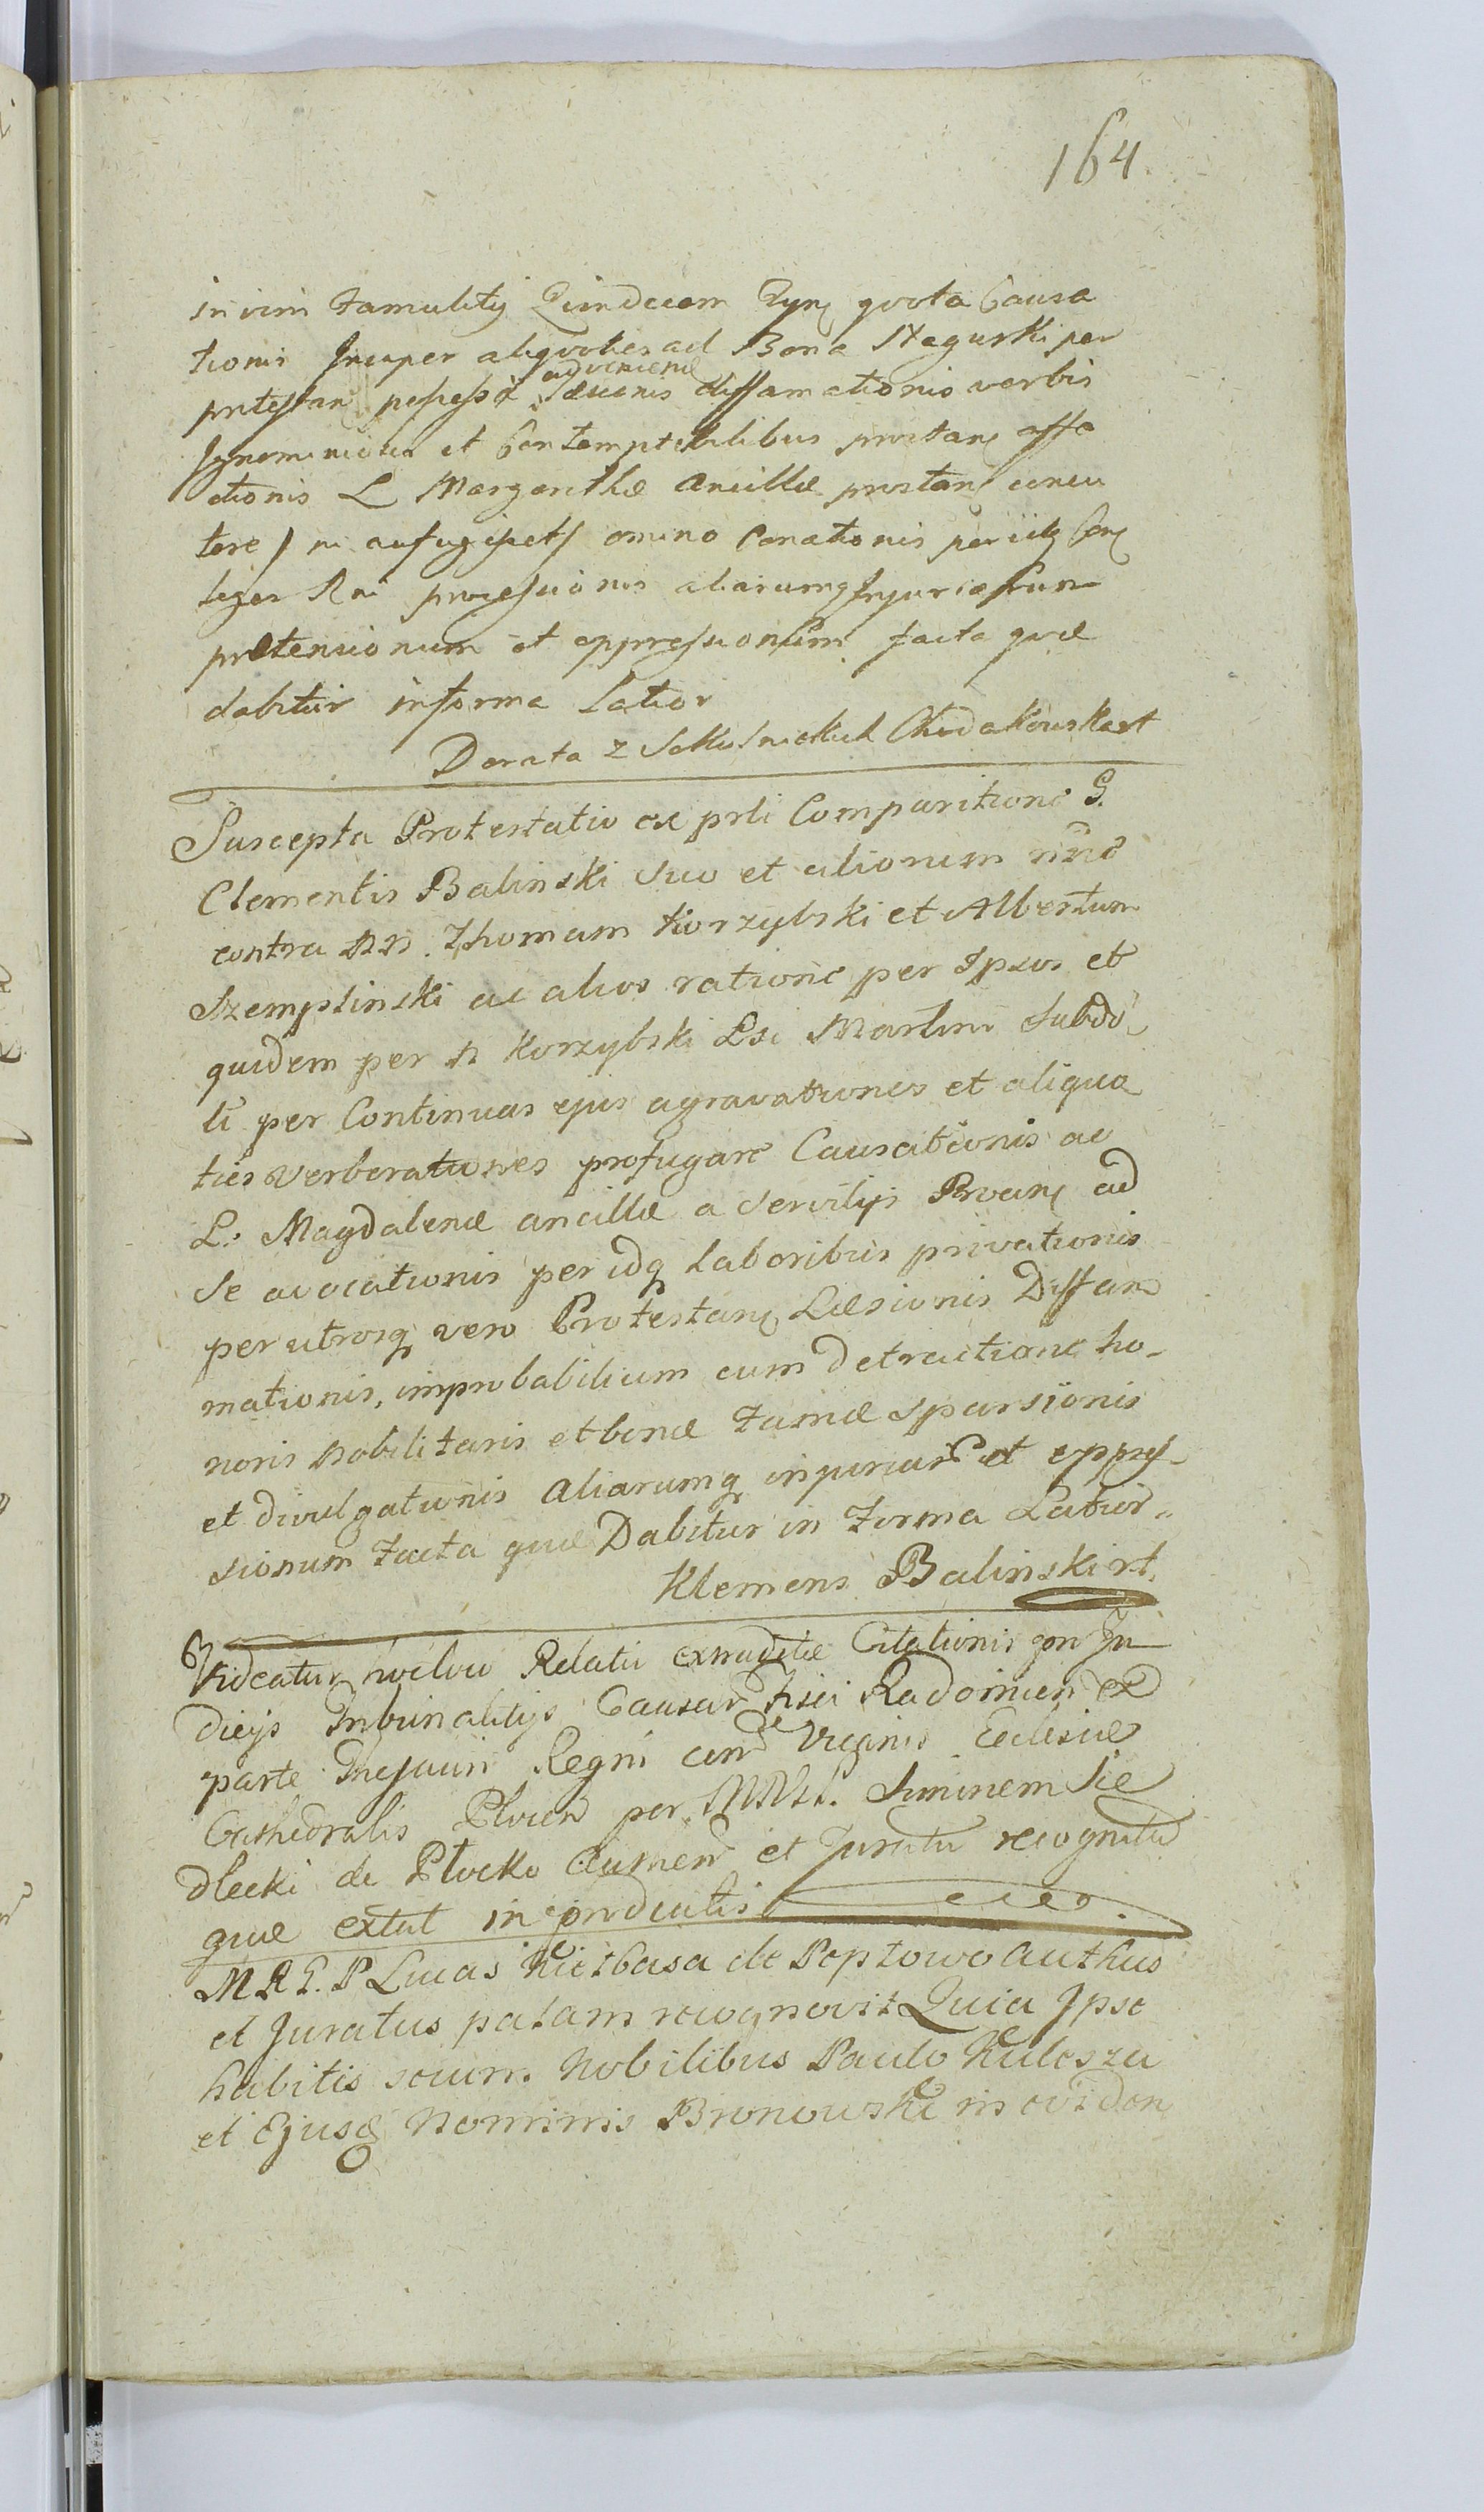 164
in vim famulitij Quindecem Tynf quota Causa
tionis Insuper aliquoties ad Bona Staguski per
protestan possessa adveniend læsionis diffamationis verbis
Ignominiosis et Contemptibilibus protan affe
ctionis L Margarithæ Ancillæ protan concu
tere / ni aufugisset / omino Conationis periitq Con
leges Rni processionis aliarumq Injuriarum
prætensionum et oppressionum facta quæ
dabitur in forma latior
Dorota z Chodakowska rt
Suscepta Protestatio ex prti Comparitione G.
Clementis Balinski suo et aliorum nne
contra NN. Thomam Korzybski et Albertum
Szemplinski ac alios ratione per Ipsos et
quidem per N Korzybski Lsi Martini Subdi
ti per Continuas ejus agravationes et aliquo
ties verberationes profugare Causationis ac
L. Magdalenæ ancillæ a servitijs Protan ad
se avocationis per idq Laboribus privationis
per utrosq vero Protestan Læsionis Diffam
mationis, improbabilium cum detractione ho-
noris nobilitaris et bonæ famæ sparsionis
et divulgationis aliarumq injuriar et oppres-
sionum facta quæ Dabitur in forma Latior..
Klemens Balinski rt.
Videatur Relatio extraditæ Citationis pro Ju
dicijs Tribunalitijs Causar Fisci Radomien ex
parte Thesauri Regni con Vicarios Ecclesiæ
Cathedralis Plocen per MRSt. Siminem Sie
dlecki de Plocko Aumen et Juratu recognita
quæ extat in productis
MRG. P Lucas Kiełbasa de Poptowo Authus
et Juratus palam recognovit Quia Ipse
habitis secum Nobilibus Paulo Kulesza
et Ejusq Nominis Bronowski in eviden